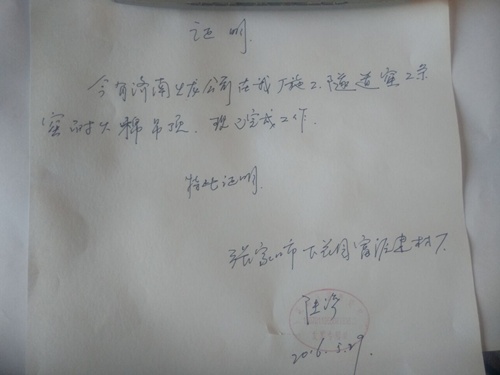 证明
今有济南火龙公司在我厂施工隧道窑2条
窑耐火棉吊顶、现已完成工作.
特此证明
张家口市下花园富源建材厂
2016.5.29.